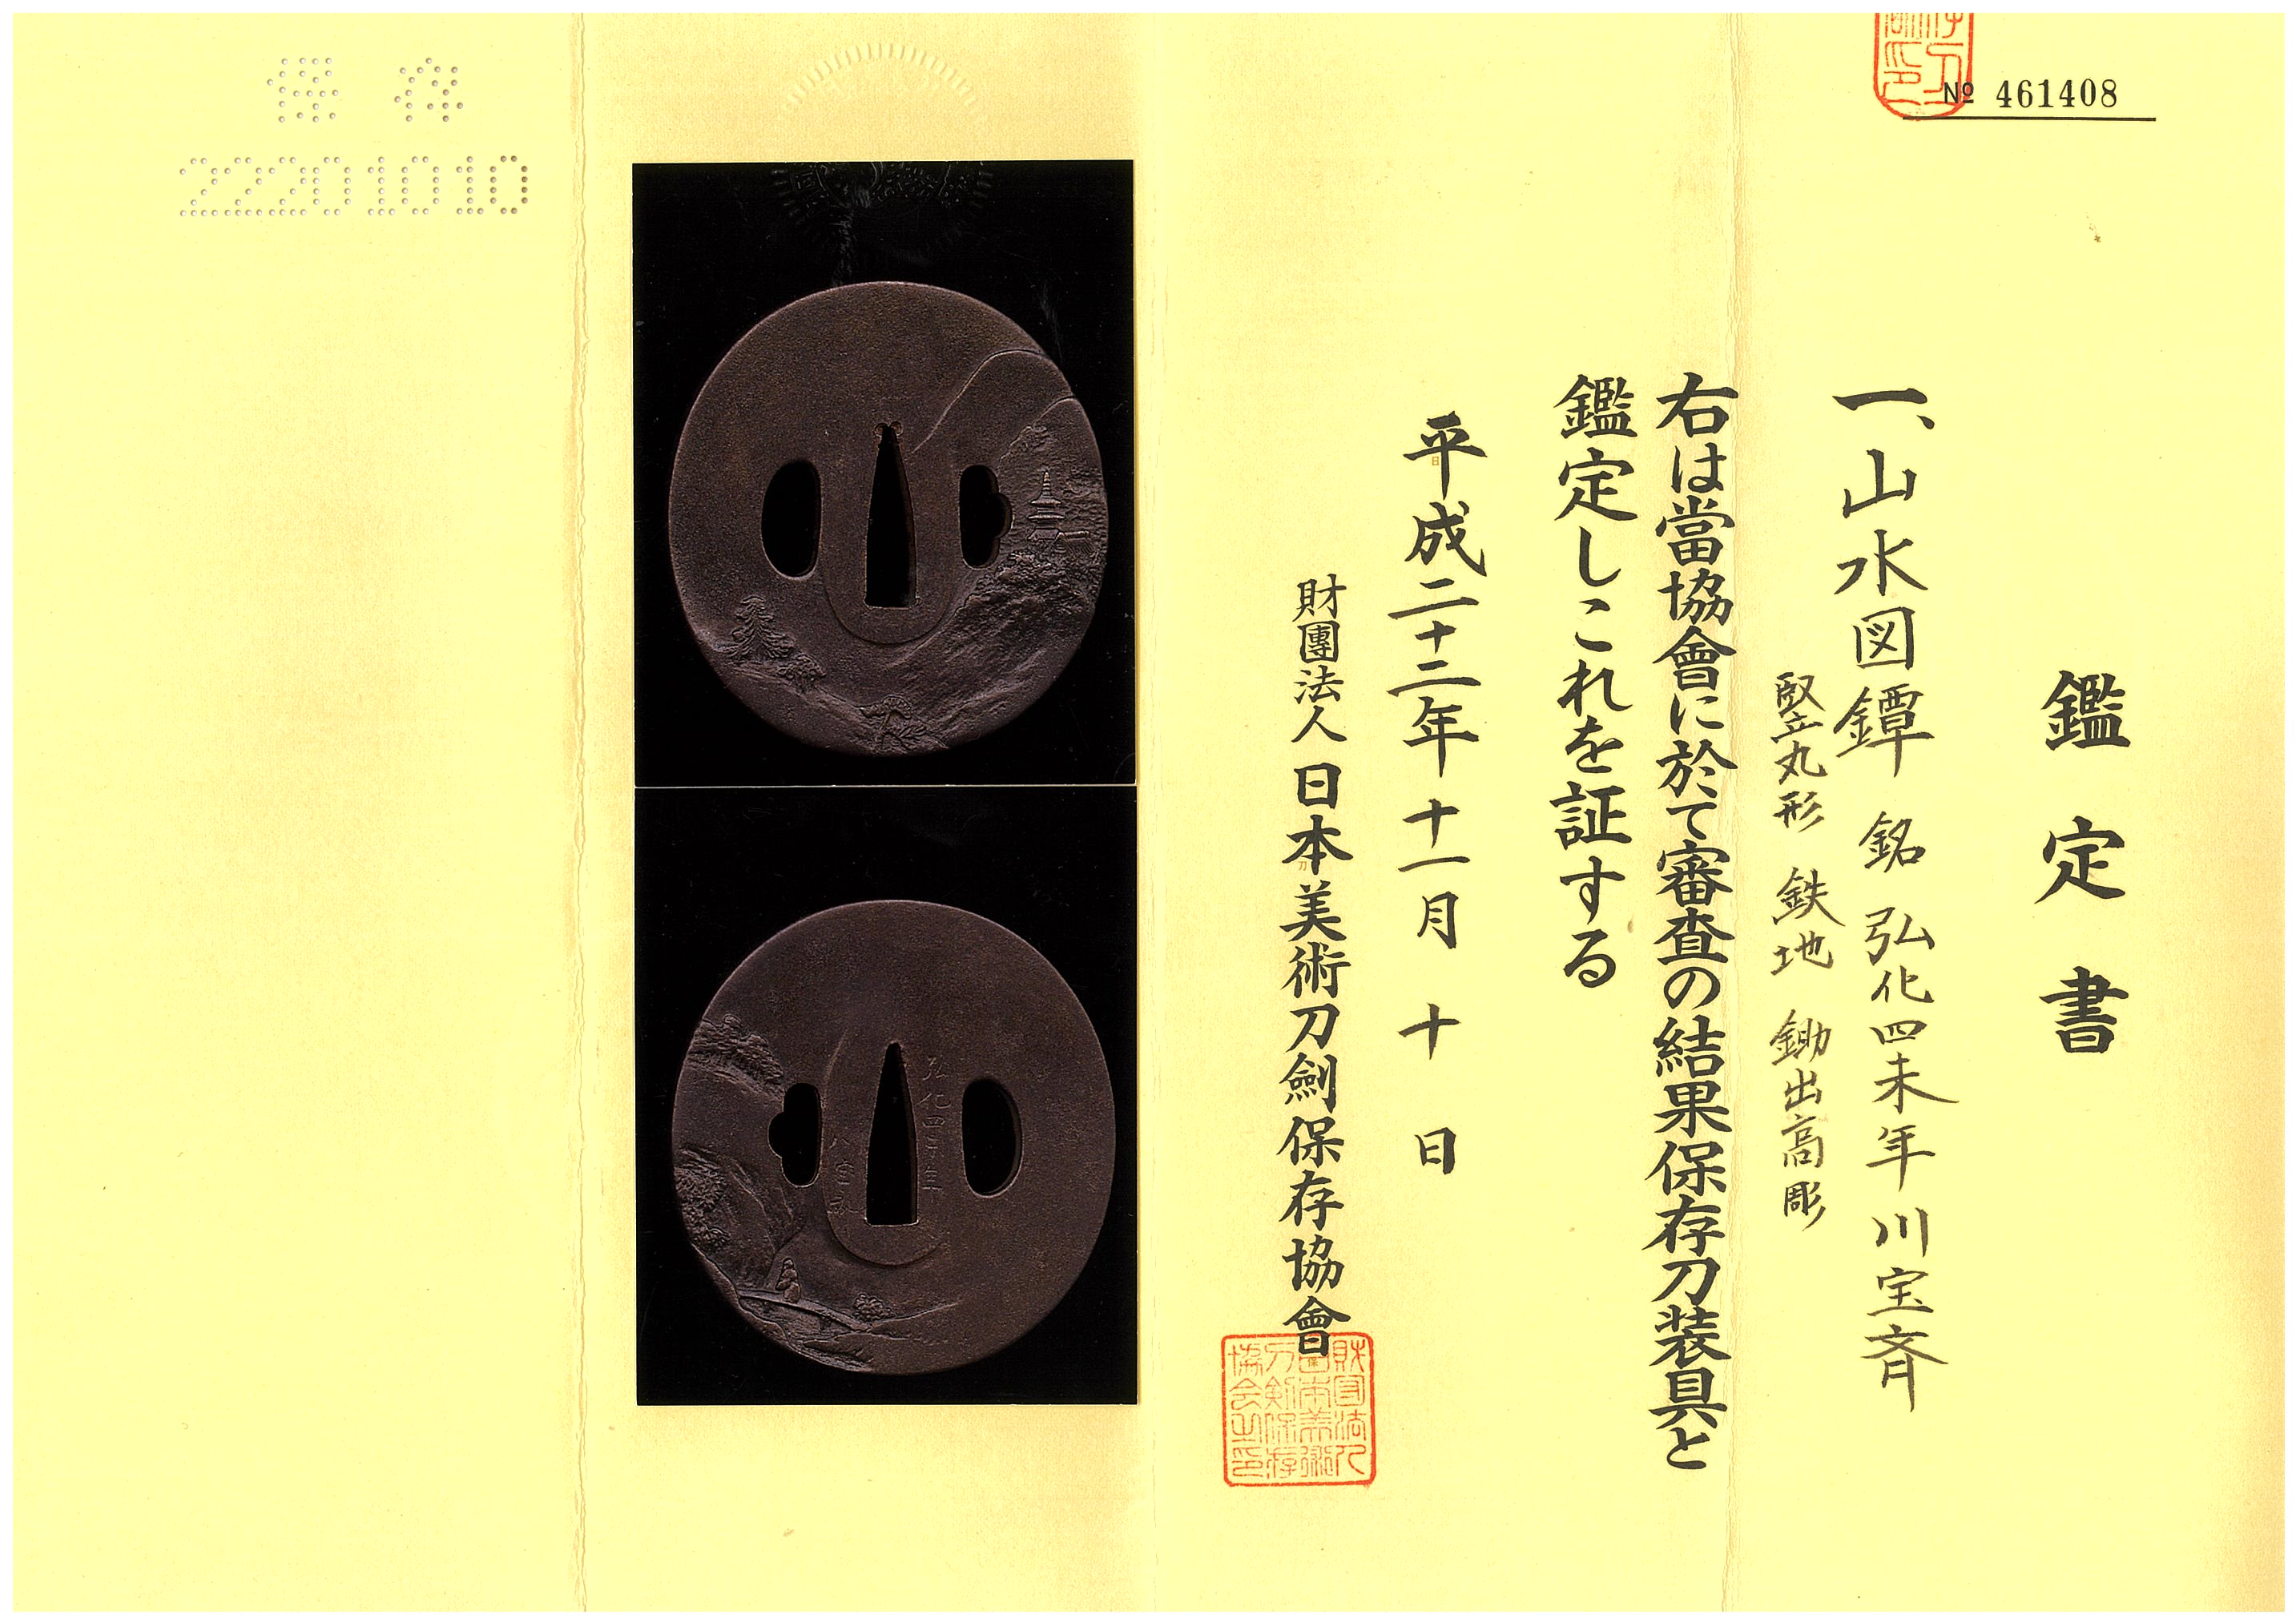 № 461408
鑑定書
一、山水図鐔 銘 弘化四未年川宝斉
竪丸形 鉄地 鋤出高彫
右は當協會に於て審査の結果保存刀装具と
鑑定しこれを証する
平成二十二年 十一月 十 日
財團法人 日本美術刀劍保存協會
財団法人
日本美術
刀剣保存
協会之印
弘化四
保存
22201010